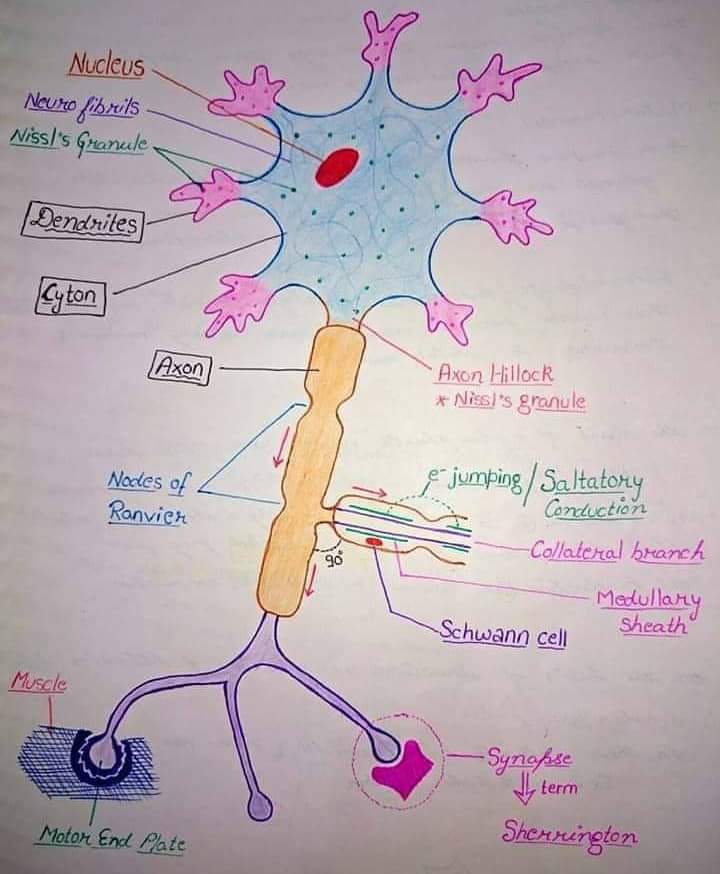 Nucleus
Neuro fibrils
Nissl's Granule
Dendrites
Cyton
Axon
Axon Hillock
* Nissl's granule
Nodes of
Ranvier
e⁻ jumping / Saltatory
Conduction
90°
Collateral branch
Medullary
Sheath
Schwann cell
Muscle
Synapse
term
Motor End Plate
Sherrington